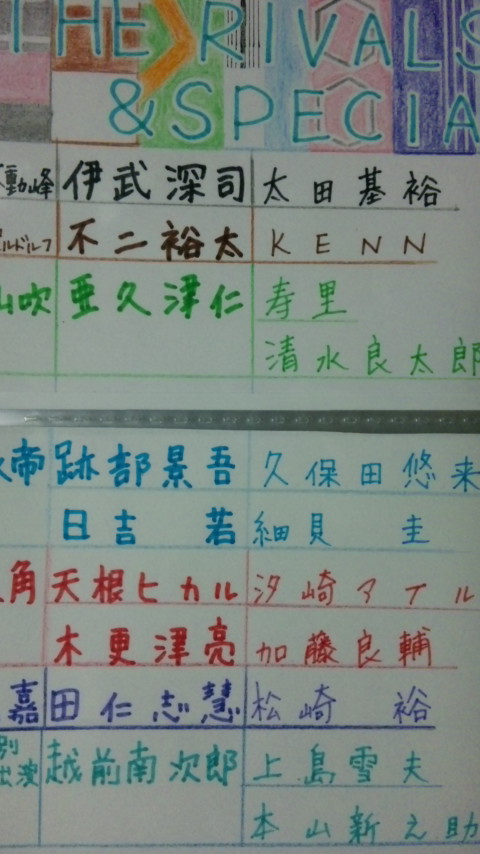 THE RIVALS
& SPECIA
動峰 伊武深司 太田基裕
ルドルフ 不二裕太 KENN
山吹 亜久津仁 寿里
清水良太郎
帝 跡部景吾 久保田悠来
日吉 若 細貝 圭
角 天根ヒカル 汐崎アイル
木更津亮 加藤良輔
嘉 田仁志慧 松崎 裕
別 越前南次郎 上島雪夫
出演
本山新之助